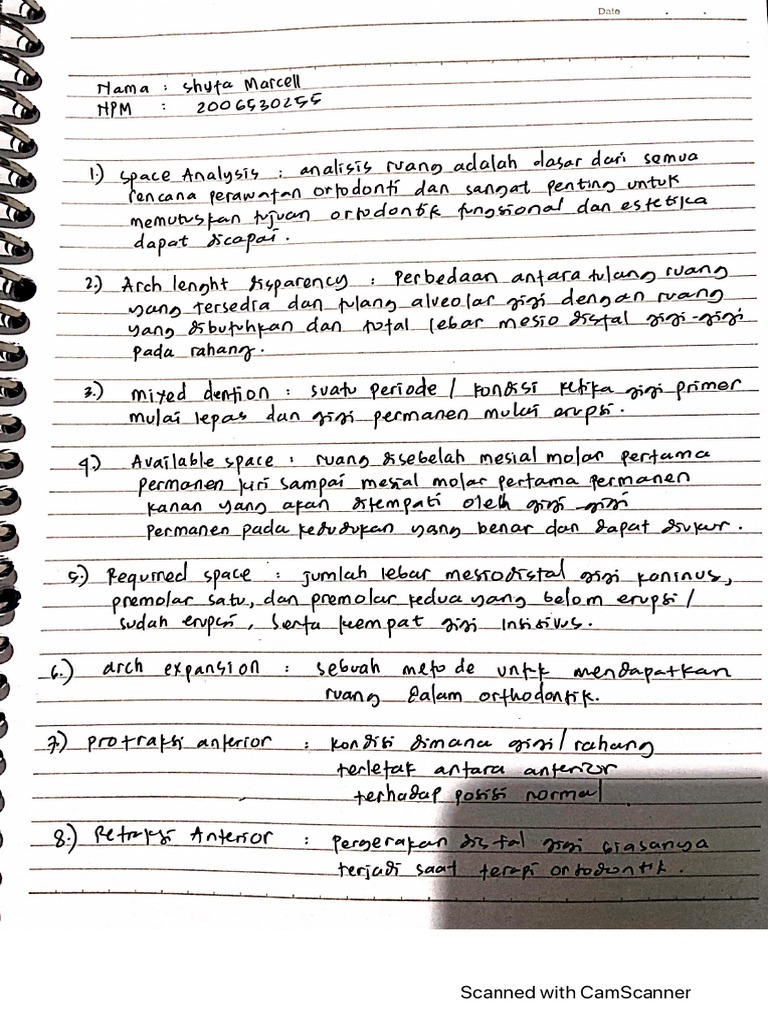 Date . .
Nama : Shyfa Marcell
NPM : 2006530255
1.) Space Analysis : analisis ruang adalah dasar dari semua
rencana perawatan ortodonti dan sangat penting untuk
memutuskan tujuan ortodontik fungsional dan estetika
dapat dicapai.
2.) Arch lenght disparency : Perbedaan antara tulang ruang
yang tersedia dan tulang alveolar gigi dengan ruang
yang dibutuhkan dan total lebar mesio distal gigi-gigi
pada rahang.
3.) mixed dention : suatu periode / kondisi ketika gigi primer
mulai lepas dan gigi permanen mulai erupsi.
4.) Available space : ruang disebelah mesial molar pertama
permanen kiri sampai mesial molar pertama permanen
kanan yang akan ditempati oleh gigi-gigi
permanen pada kedudukan yang benar dan dapat diukur.
5.) Required space : jumlah lebar mesiodistal gigi koninus,
premolar satu, dan premolar kedua yang belom erupsi /
sudah erupsi, serta keempat gigi insisivus.
6.) arch expansion : sebuah metode untk mendapatkan
ruang dalam orthodontik.
7.) protraksi anterior : kondisi dimana gigi / rahang
terletak antara anterior
terhadap posisi normal
8.) Retraksi Anterior : pergerakan distal gigi biasanya
terjadi saat terapi ortodontik.
Scanned with CamScanner